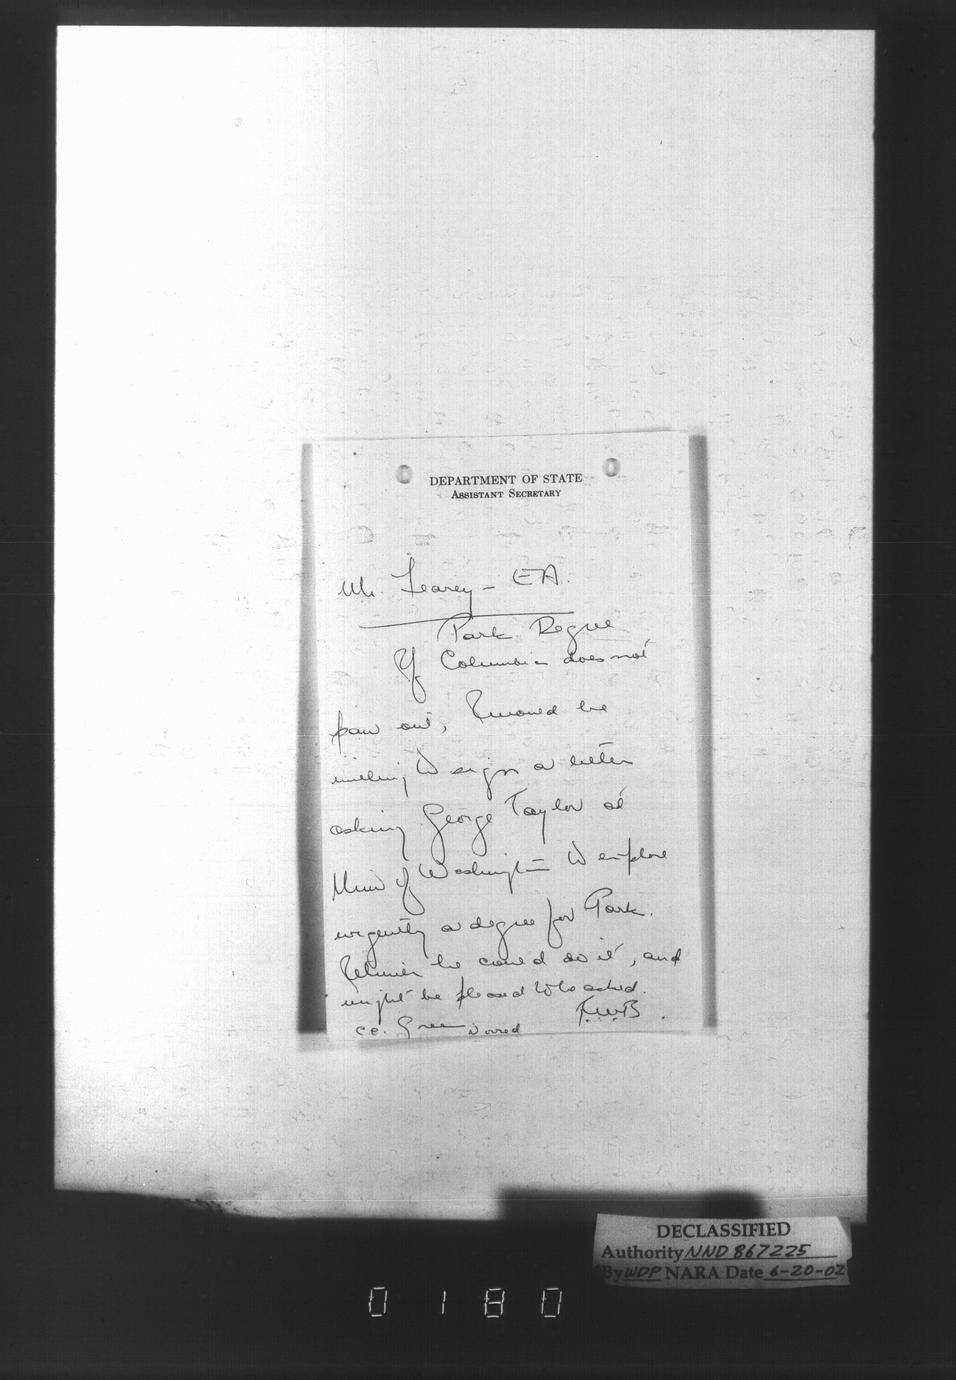 DEPARTMENT OF STATE
ASSISTANT SECRETARY
Mr. Fearey - EA.
Park Degree
If Columbia does not
pan out, I would be
willing to sign a letter
asking George Taylor at
Univ of Washington to explore
urgently a degree for Park.
I think he could do it, and
might be pleased to be asked.
cc. Green
DECLASSIFIED
Authority NND 867225
By WDP NARA Date 6-20-02
0180